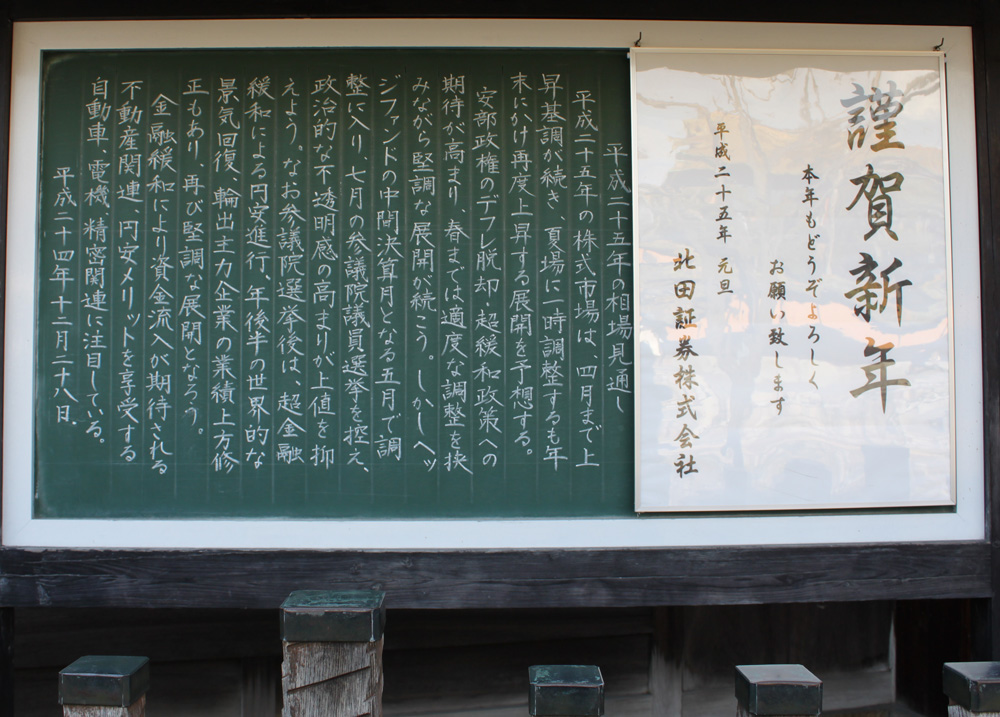 謹賀新年
本年もどうぞよろしく
お願い致します
平成二十五年 元旦
北田証券株式会社
平成二十五年の相場見通し
平成二十五年の株式市場は、四月まで上
昇基調が続き、夏場に一時調整するも年
末にかけ再度上昇する展開を予想する。
安部政権のデフレ脱却・超緩和政策への
期待が高まり、春までは適度な調整を挟
みながら堅調な展開が続こう。しかしヘッ
ジファンドの中間決算月となる五月で調
整に入り、七月の参議院議員選挙を控え、
政治的な不透明感の高まりが上値を抑
えよう。なお参議院選挙後は、超金融
緩和による円安進行、年後半の世界的な
景気回復、輸出主力企業の業績上方修
正もあり、再び堅調な展開となろう。
金融緩和により資金流入が期待される
不動産関連、円安メリットを享受する
自動車、電機、精密関連に注目している。
平成二十四年十二月二十八日、